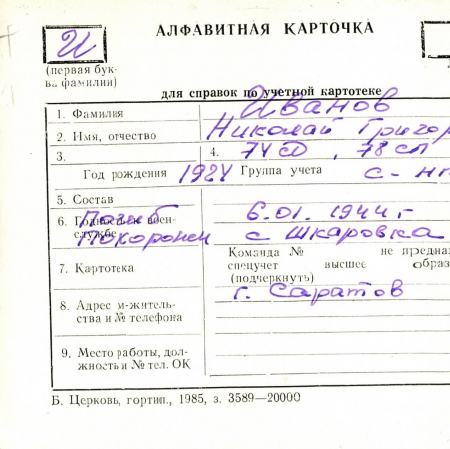 АЛФАВИТНАЯ КАРТОЧКА
И
(первая бук-
ва фамилии)
для справок по учетной картотеке
1. Фамилия Иванов
2. Имя, отчество Николай Григор
3. 4. 74 сд, 78 сп
Год рождения 1924 Группа учета с-нт
5. Состав
6. Годность к воен- Погиб 6.01.1944 г
службе Похоронен с Шкаровка
Команда № не предназ
7. Картотека спецучет высшее образ
(подчеркнуть)
8. Адрес м-житель- г. Саратов
ства и № телефона
9. Место работы, дол-
жность и № тел. ОК
Б. Церковь, гортип., 1985, з. 3589—20000